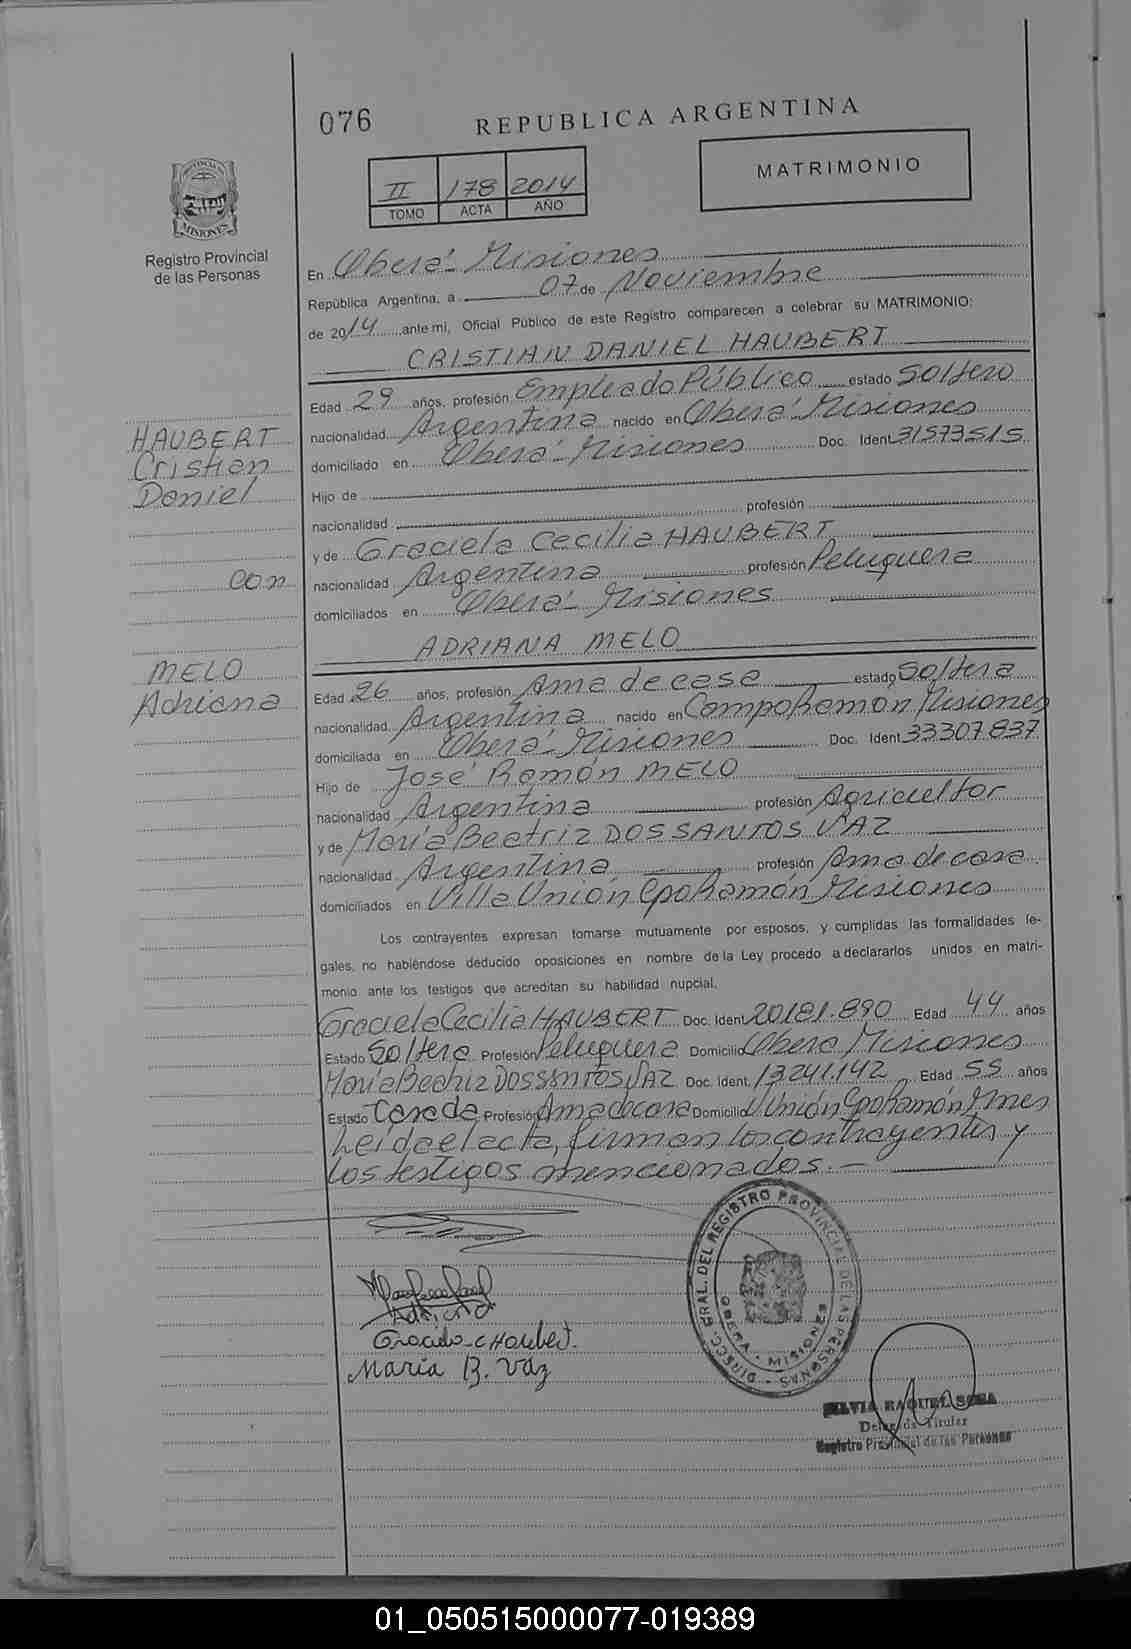 076
REPUBLICA ARGENTINA
PROVINCIA
MISIONES
II 178 2014
TOMO ACTA AÑO
MATRIMONIO
Registro Provincial
de las Personas
En Oberá - Misiones
República Argentina, a 07 de Noviembre
de 2014 ante mi, Oficial Público de este Registro comparecen a celebrar su MATRIMONIO:
CRISTIAN DANIEL HAUBERT
Edad 29 años, profesión Empleado Público estado Soltero
nacionalidad Argentina nacido en Oberá - Misiones
domiciliado en Oberá - Misiones Doc. Ident 31573515
Hijo de
nacionalidad profesión
y de Graciela Cecilia HAUBERT
nacionalidad Argentina profesión Peluquera
domiciliados en Oberá - Misiones
HAUBERT
Cristian
Daniel
con
MELO
Adriana
ADRIANA MELO
Edad 26 años, profesión Ama de casa estado Soltera
nacionalidad Argentina nacido en Campo Ramón Misiones
domiciliada en Oberá - Misiones Doc. Ident 33307837
Hijo de José Ramón MELO
nacionalidad Argentina profesión Agricultor
y de María Beatriz DOS SANTOS VAZ
nacionalidad Argentina profesión Ama de casa
domiciliados en Villa Unión Cpo Ramón Misiones
Los contrayentes expresan tomarse mutuamente por esposos, y cumplidas las formalidades le-
gales, no habiéndose deducido oposiciones en nombre de la Ley procedo a declararlos unidos en matri-
monio ante los testigos que acreditan su habilidad nupcial.
Graciela Cecilia HAUBERT Doc. Ident 20181.890 Edad 44 años
Estado Soltera Profesión Peluquera Domicilio Oberá Misiones
María Beatriz DOS SANTOS VAZ Doc. Ident. 13241.142 Edad 55 años
Estado Casada Profesión Ama de casa Domicilio V Unión Cpo Ramón Mnes
Leída el acta, firman los contrayentes y
los testigos mencionados. —
Adriana
Graciela C Haubert.
María B. Vaz
DIRECC. GRAL. DEL REGISTRO PROVINCIAL DE LAS PERSONAS
OBERA - MISIONES
SILVIA RAQUEL SOSA
Delegada Titular
Registro Provincial de las Personas
01_050515000077-019389